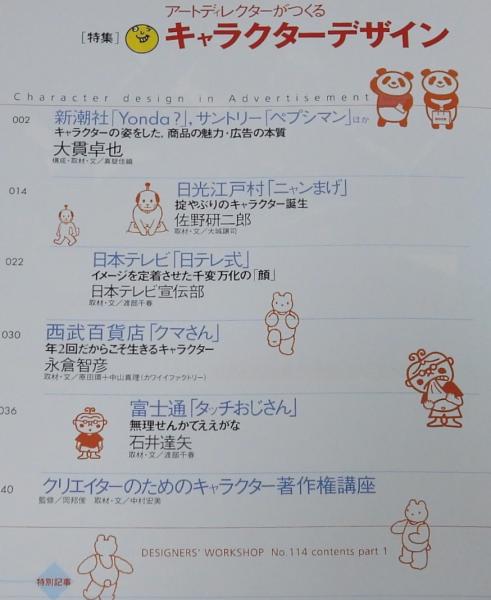 アートディレクターがつくる
[特集] キャラクターデザイン
Character design in Advertisement
002 新潮社「Yonda?」,サントリー「ペプシマン」ほか
キャラクターの姿をした,商品の魅力・広告の本質
大貫卓也
構成・取材・文/真壁佳織
014 日光江戸村「ニャンまげ」
掟やぶりのキャラクター誕生
佐野研二郎
取材・文/大城譲司
022 日本テレビ「日テレ式」
イメージを定着させた千変万化の「顔」
日本テレビ宣伝部
取材・文/渡部千春
030 西武百貨店「クマさん」
年2回だからこそ生きるキャラクター
永倉智彦
取材・文/原田環+中山真理(カワイイファクトリー)
036 富士通「タッチおじさん」
無理せんかてええがな
石井達矢
取材・文/渡部千春
40 クリエイターのためのキャラクター著作権講座
監修/岡邦俊 取材・文/中村宏美
DESIGNERS' WORKSHOP No.114 contents part 1
特別記事